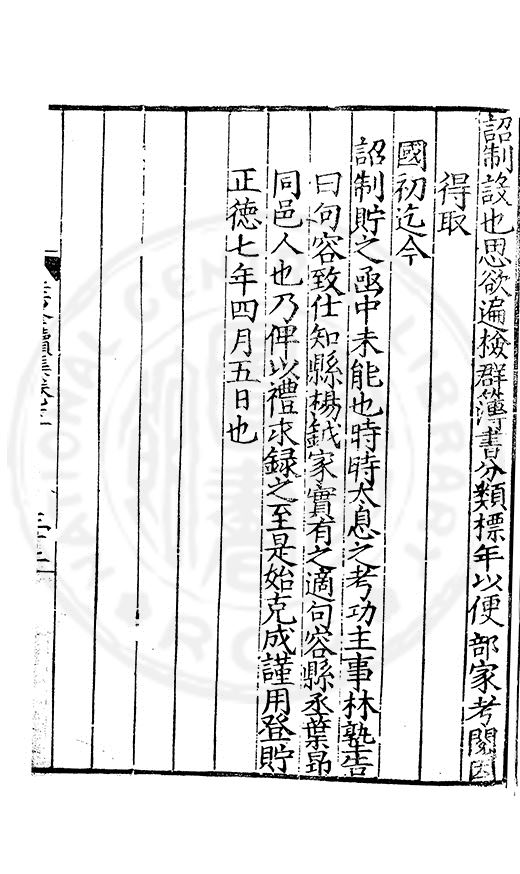 詔制設也思欲遍檢群簿書分類標年以便部家考閱因
得取
國初迄今
詔制貯之函中未能也時時太息之考功主事林塾告
曰句容致仕知縣楊鉞家實有之適句容縣丞葉昂
同邑人也乃俾以禮求録之至是始克成謹用登貯
正德七年四月五日也